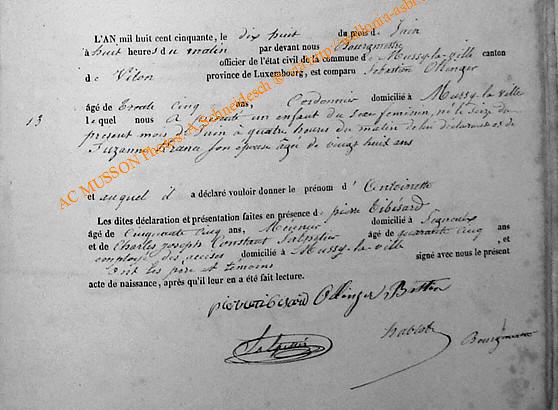 L'AN mil huit cent cinquante, le dix huit du mois de Juin
à huit heures du matin par devant nous Bourgmestre
officier de l'état civil de la commune de Mussy-la-ville canton
de Virton province de Luxembourg, est comparu Sébastien Ollinger
âgé de Trente Cinq ans, Cordonnier domicilié à Mussy-la-Ville
13 lequel nous a présenté un enfant du sexe féminin, né le seize du
présent mois de Juin à quatre heures du matin de lui déclarant et de
Suzanne son épouse âgée de vingt huit ans
et auquel il a déclaré vouloir donner le prénom d'Antoinette
Les dites déclaration et présentation faites en présence de pierre Gibésard
âgé de Cinquante Cinq ans, Meunier domicilié à
et de Charles Joseph Constant âgé de quarante Cinq ans
employé des accises domicilié à Mussy-la-ville, et
ont les père et témoins signé avec nous le présent
acte de naissance, après qu'il leur en a été fait lecture.
pierre Gibesard Ollinger
Bourgmestre
AC MUSSON Photos A.Schneidesch